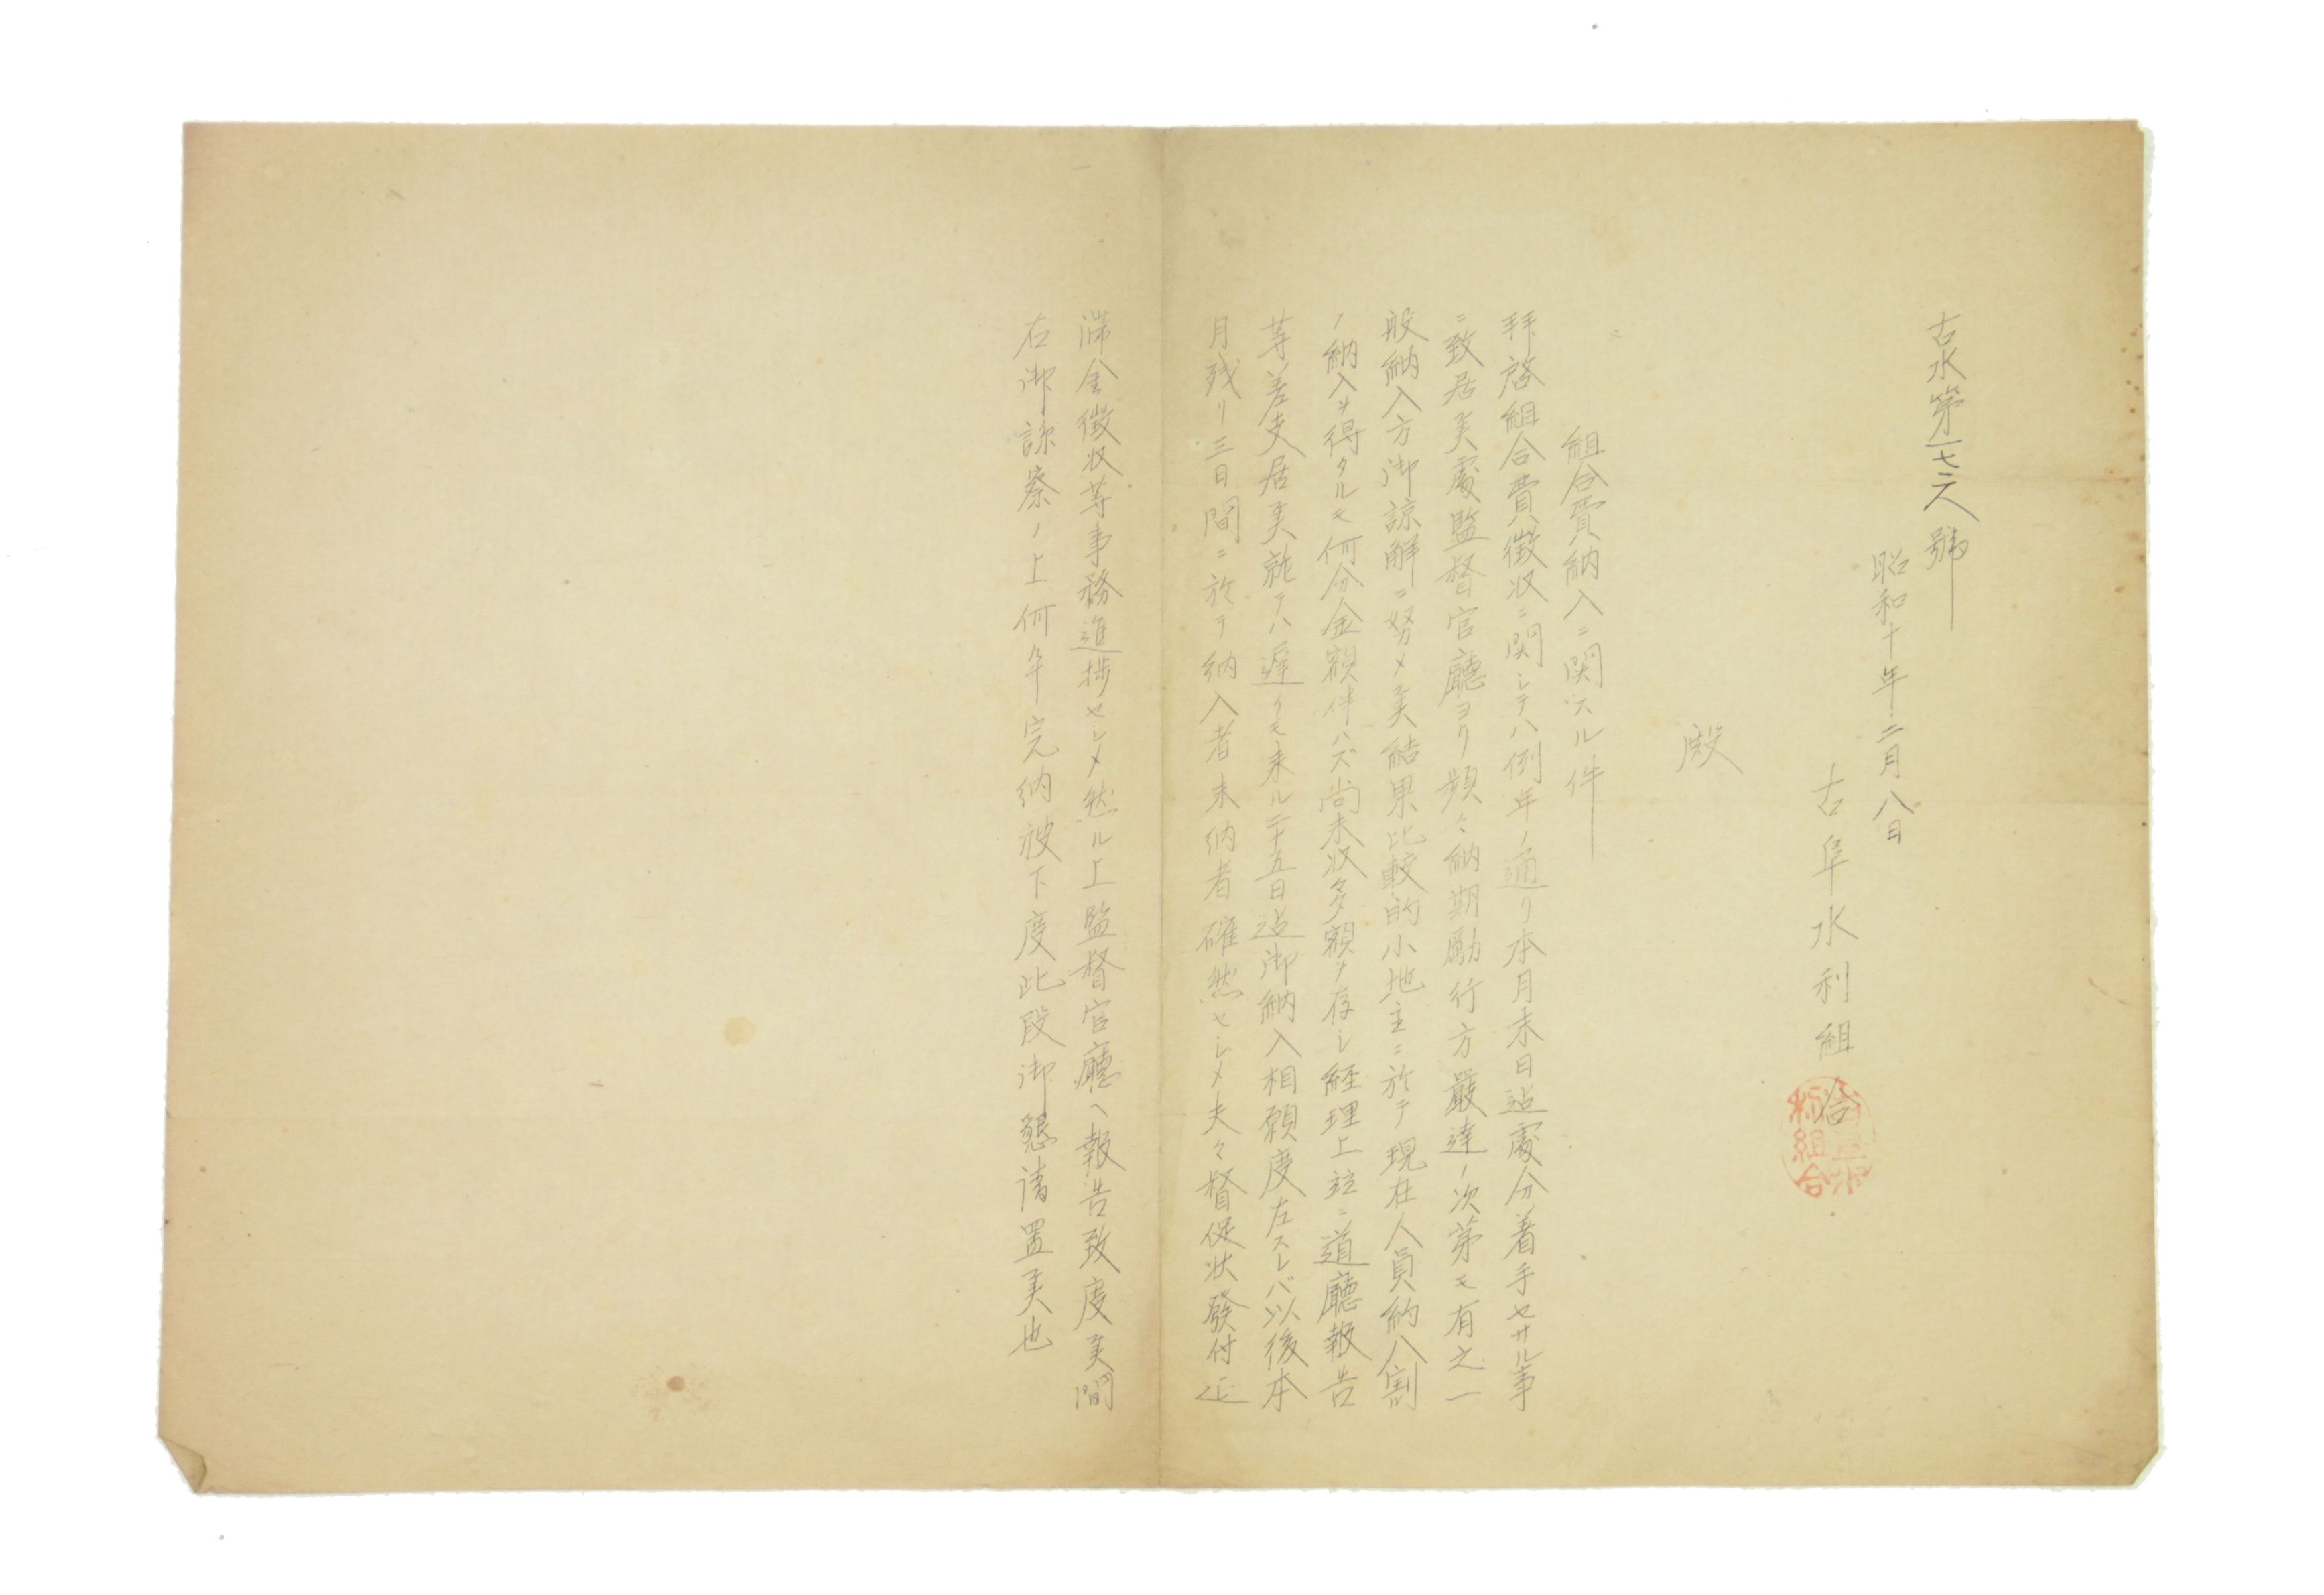 古水第一七六號
昭和十年二月八日
古阜水利組合
古阜水利組合
殿
組合費納入ニ関スル件
拝啓組合費徴収ニ関シテハ例年ノ通リ本月末日迄處分着手セサル事
ニ致居候處監督官廳ヨリ頻々納期勵行方嚴達ノ次第モ有之一
般納入方御諒解ニ努メ候結果比較的小地主ニ於テ現在人員約八割
ノ納入ヲ得タルモ何分金額伴ハズ尚未収多額ヲ存シ経理上並ニ道廳報告
等差支居候就テハ遅クモ来ル二十五日迄御納入相願度左スレバ以後本
月残リ三日間ニ於テ納入者未納者確然セシメ夫々督促状發付延
滞金徴収等事務進捗セシメ然ル上監督官廳ヘ報告致度候間
右御諒察ノ上何卒完納被下度此段御懇請置候也